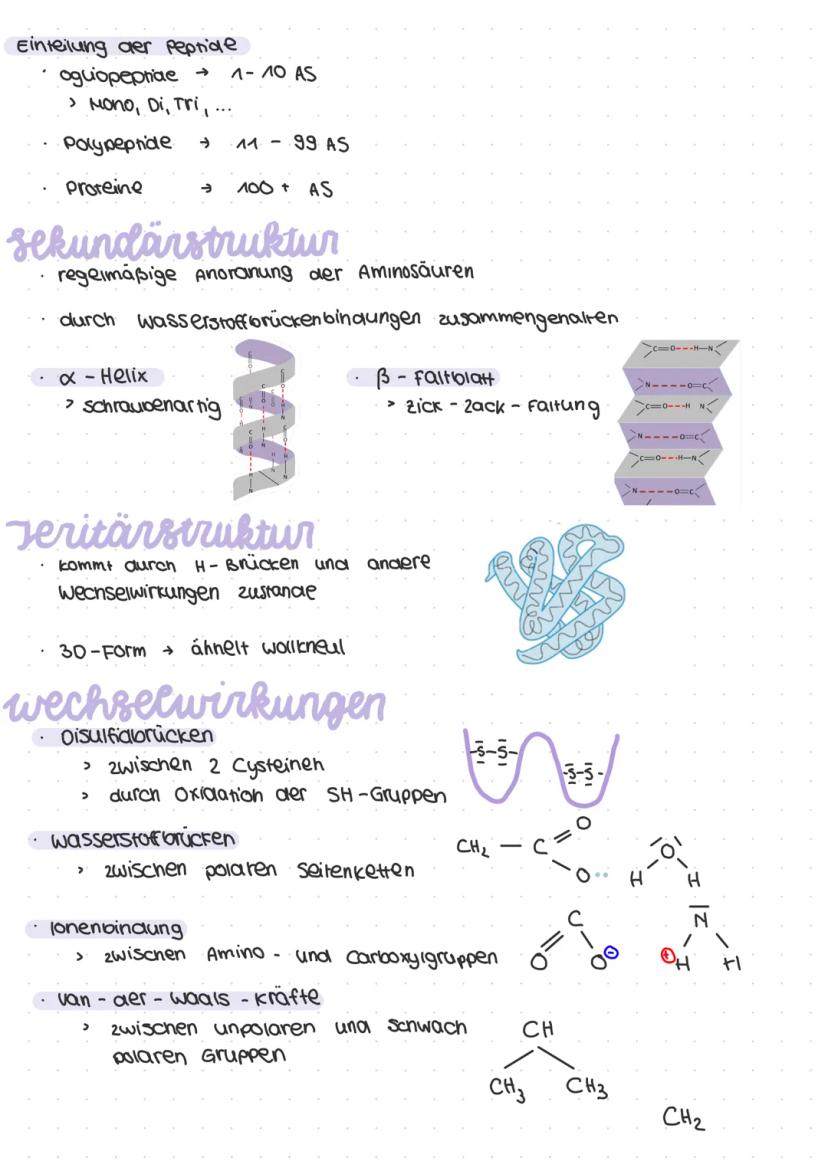 Einteilung der Peptide
· Ogliopeptide → 1-10 AS
> Mono, Di, Tri, ...
· Polypeptide → 11 - 99 AS
· Proteine → 100 + AS
Sekundärstruktur
· regelmäßige Anordnung der Aminosäuren
· durch Wasserstoffbrückenbindungen zusammengehalten
· α - Helix
> schraubenartig
· β - Faltblatt
> Zick - Zack - Faltung
C=O---H-N
N-----O=C
C=O---H N
N-----O=C
C=O---H-N
N-----O=C
Teritärstruktur
· kommt durch H-Brücken und andere
Wechselwirkungen zustande
· 3D-Form → ähnelt Wollkneul
Wechselwirkungen
· Disulfidbrücken
> zwischen 2 Cysteinen
> durch Oxidation der SH-Gruppen
-S-S-
-S-S-
· Wasserstofbrücken
> zwischen polaren Seitenketten
CH₂ - C
O
O
O
H H
· Ionenbindung
> zwischen Amino- und Carboxylgruppen
C
O O⊖
N
⊕H H
· Van-der-Waals-Kräfte
> zwischen unpolaren und schwach
polaren Gruppen
CH
CH₃ CH₃
CH₂